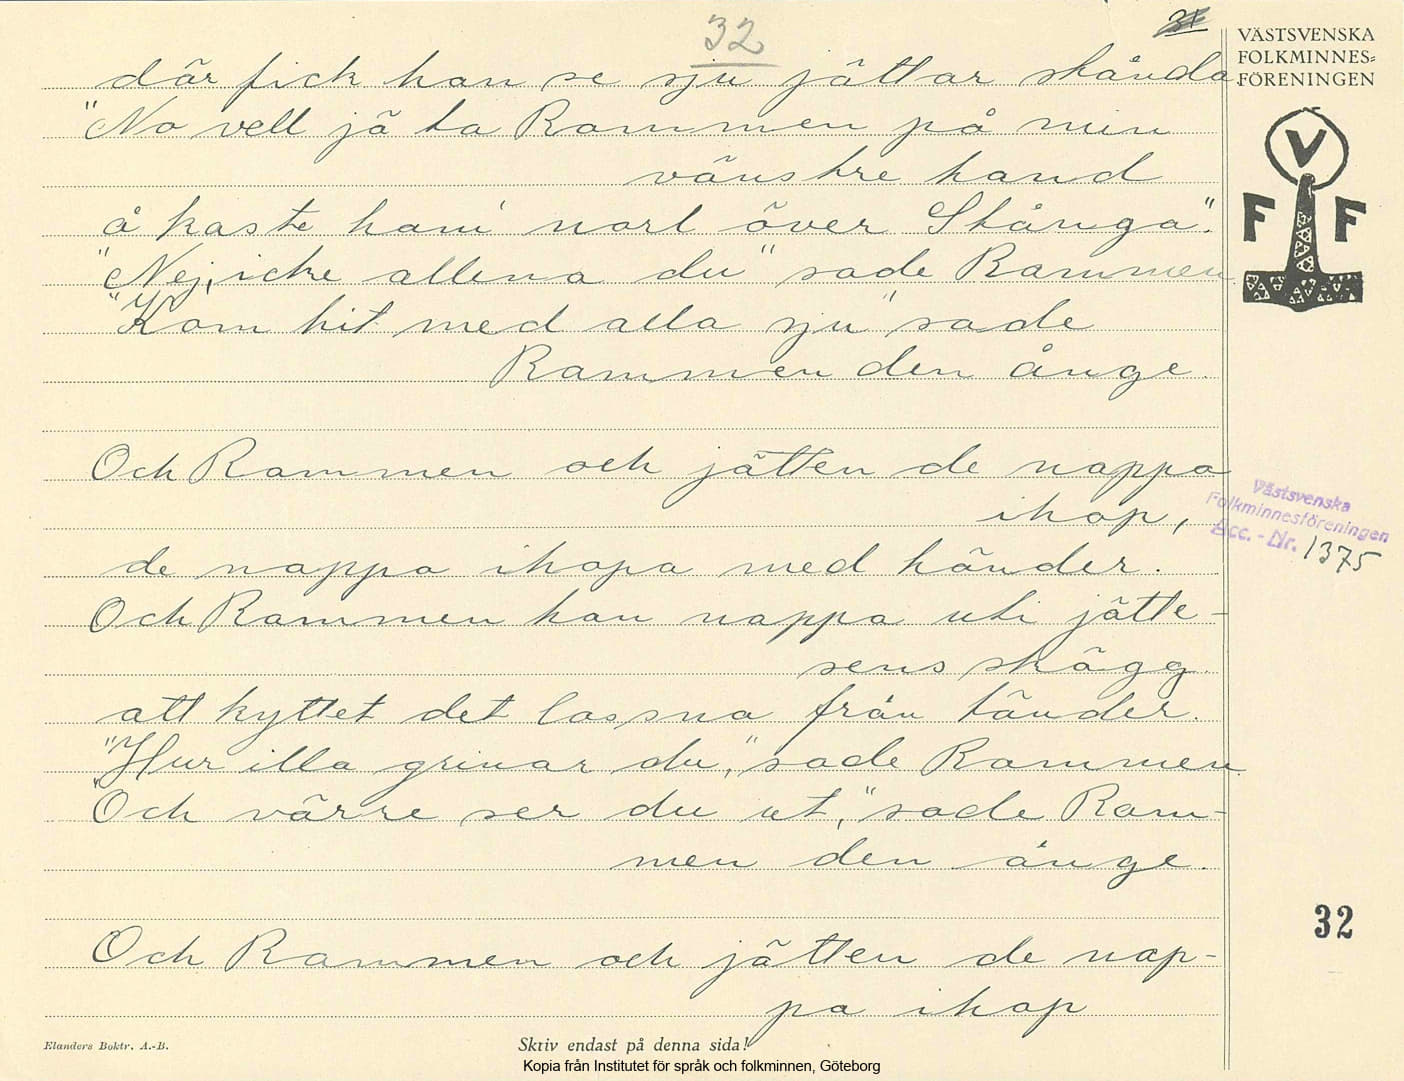 32
31
VÄSTSVENSKA
FOLKMINNES=
FÖRENINGEN
V
F F
där fick han se sju jättar stånda.
"No vell jä ta Rammen på min
vänstre hand
å kaste ham' norl över Skånga".
"Nej, icke allena du" sade Rammen.
"Kom hit med alla sju" sade
Rammen den ånge.
Och Rammen och jätten de nappa
ihop,
de nappa ihopa med händer.
Och Rammen han nappa uti jätte-
sens skägg
att kyttet det lassna från tänder.
"Hur illa grinar du," sade Rammen.
"Och värre ser du ut," sade Ram-
men den ånge.
Och Rammen och jätten de nap-
pa ihop
Västsvenska
Folkminnesföreningen
Acc. - Nr. 1375
32
Elanders Boktr. A.-B.
Skriv endast på denna sida!
Kopia från Institutet för språk och folkminnen, Göteborg